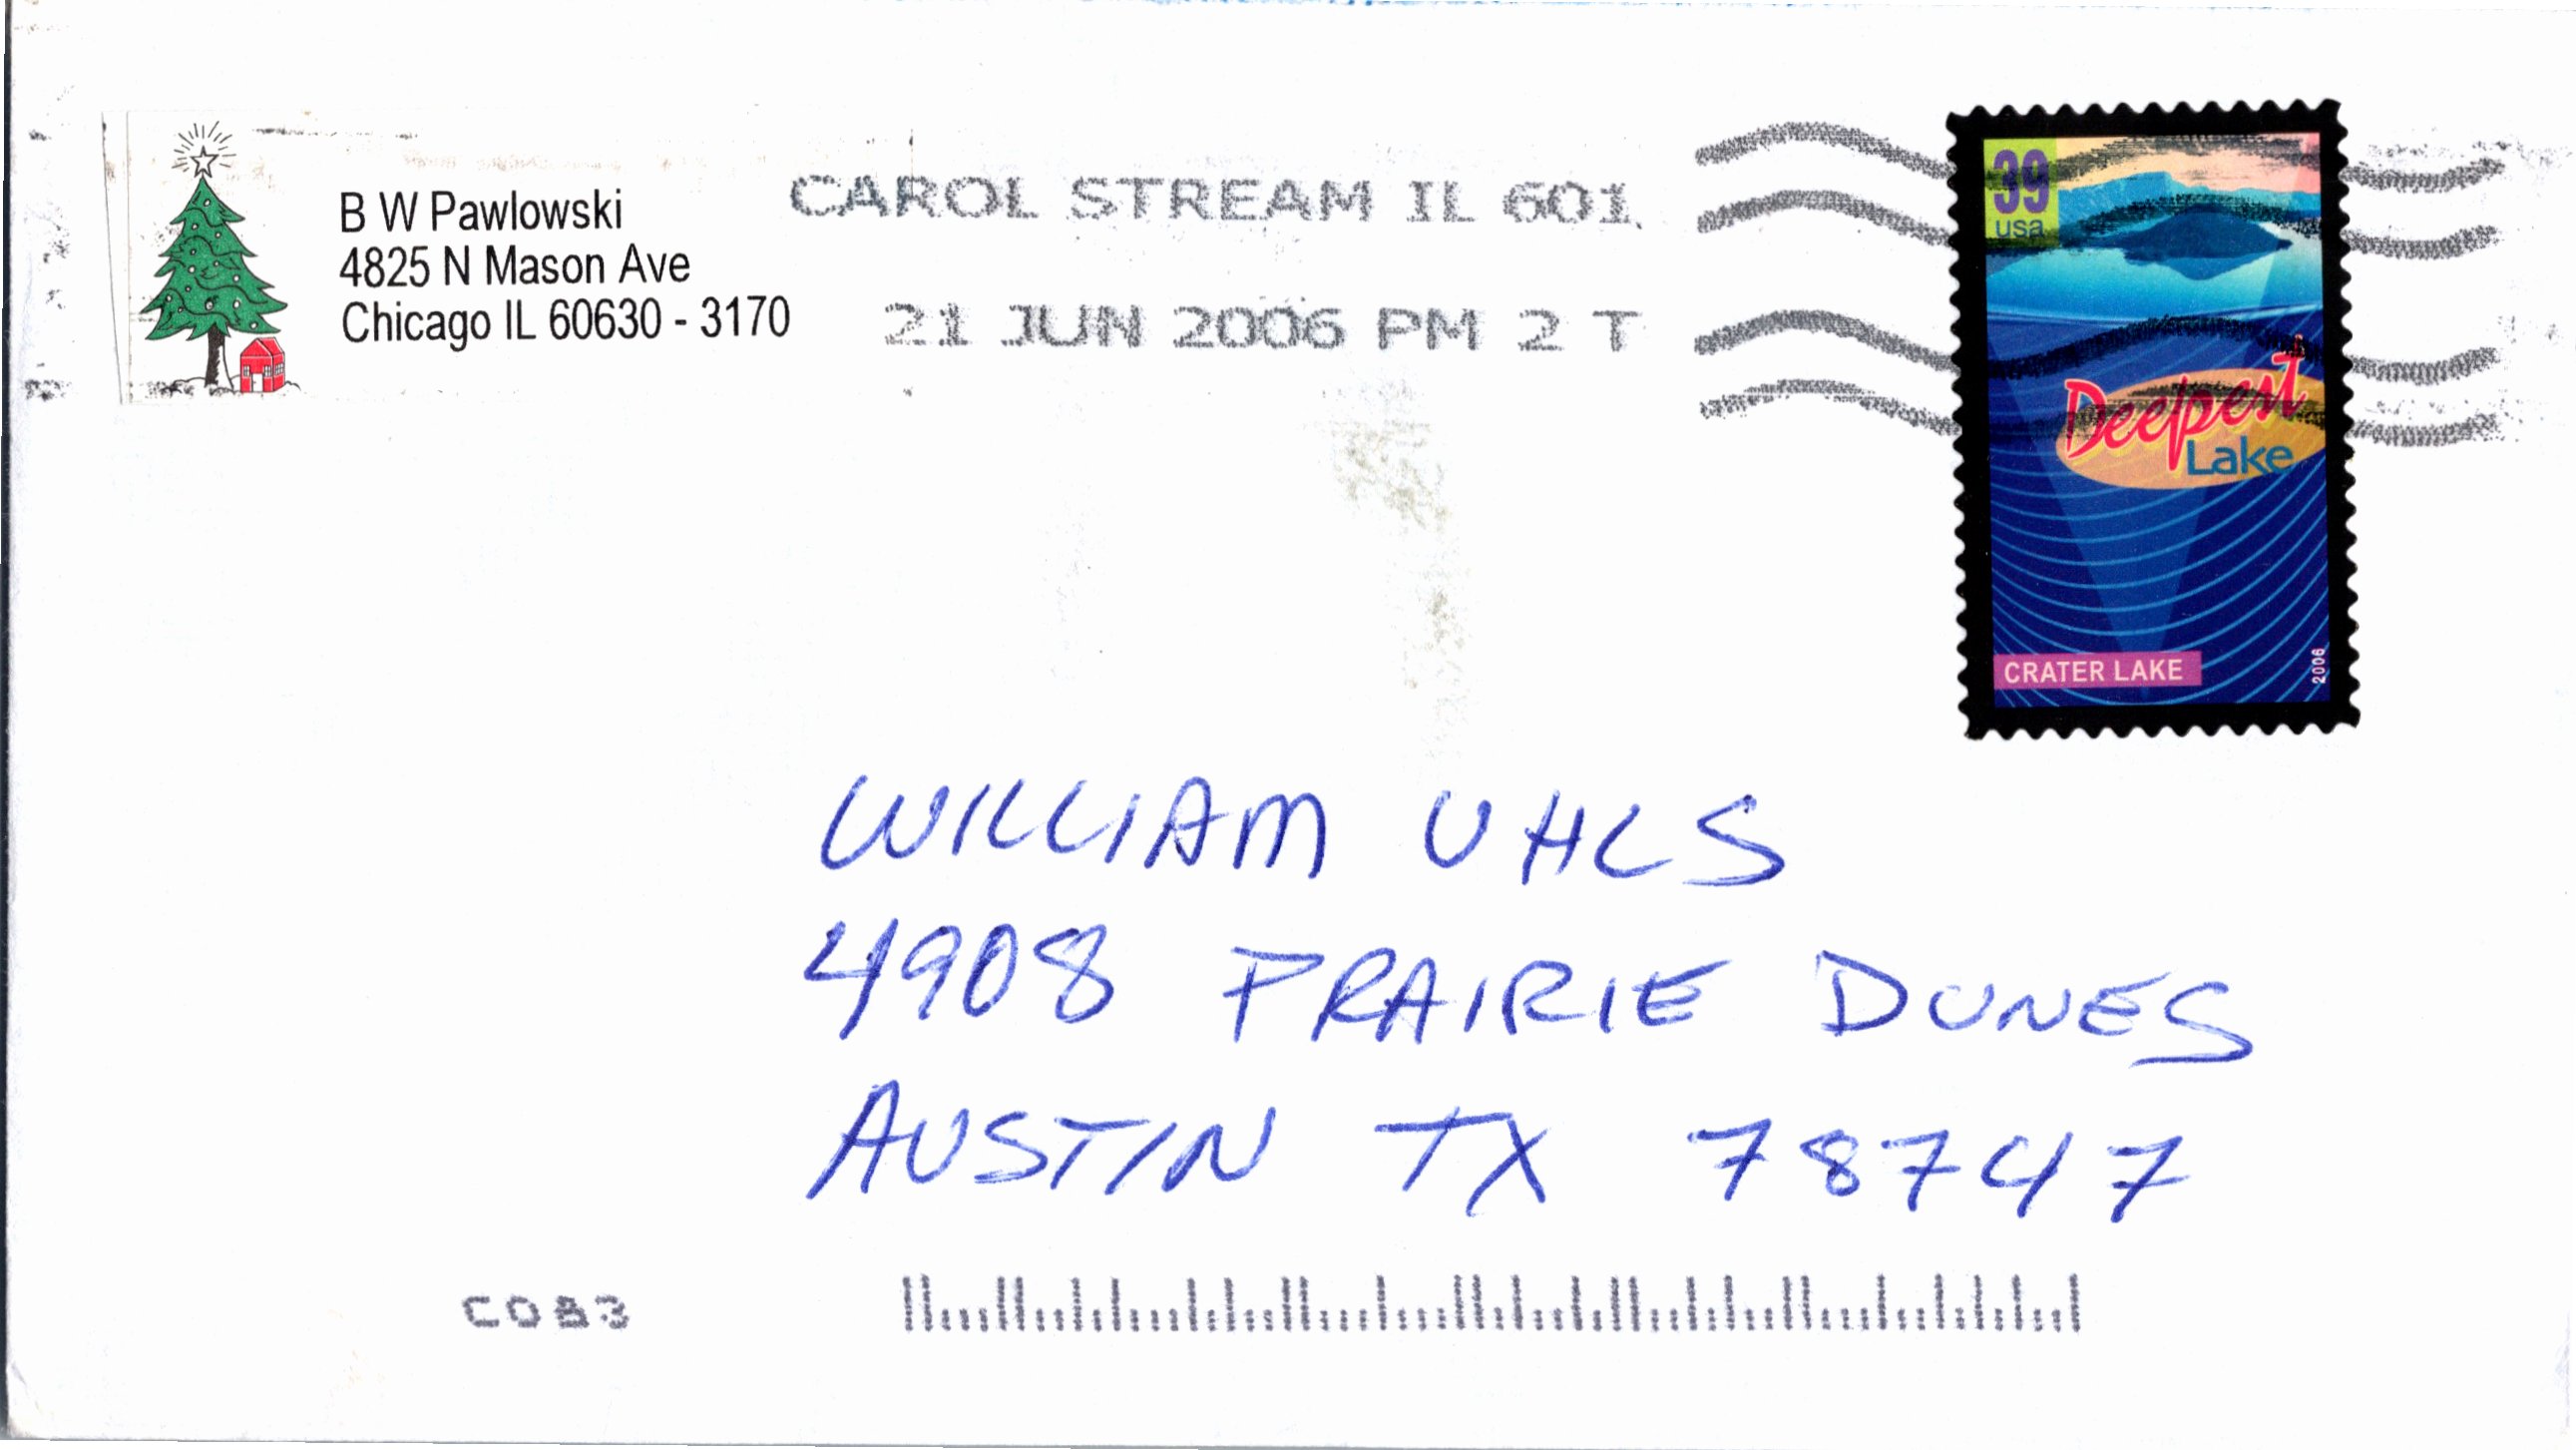 B W Pawlowski
4825 N Mason Ave
Chicago IL 60630 - 3170
CAROL STREAM IL 601
21 JUN 2006 PM 2 T
39
usa
Deepest
Lake
CRATER LAKE
2006
WILLIAM UHLS
4908 PRAIRIE DUNES
AUSTIN TX 78747
C083